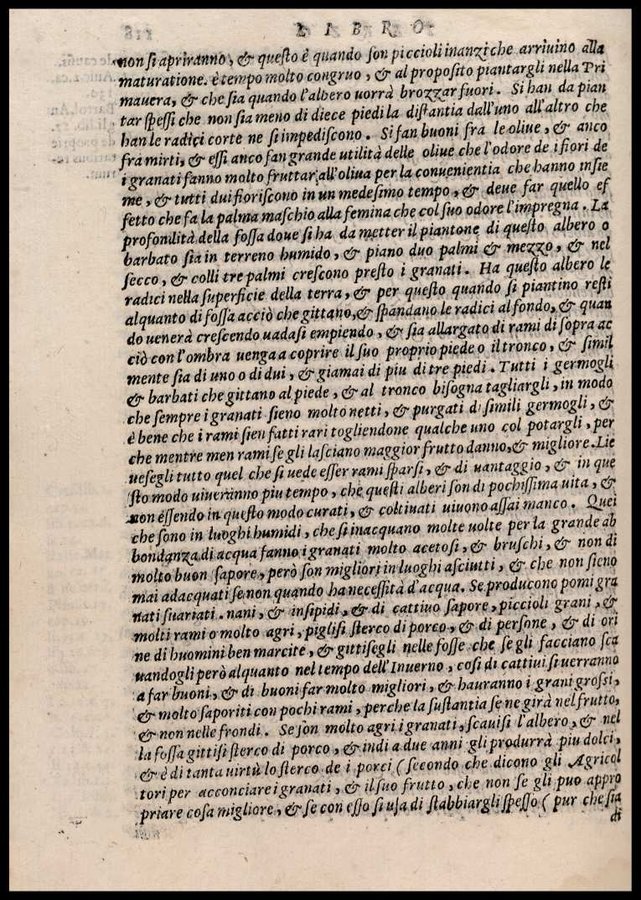 L I B R O
non si apriranno, & questo è quando son piccioli inanzi che arriuino alla
maturatione. è tempo molto congruo, & al proposito piantargli nella Pri
mauera, & che sia quando l'albero uorrà brozzar fuori. Si han da pian
tar spessi che non sia meno di diece piedi la distantia dall'uno all'altro che
han le radici corte ne si impediscono. Si fan buoni fra le oliue, & anco
fra mirti, & essi anco fan grande utilità delle oliue che l'odore de i fiori de
i granati fanno molto fruttar all'oliua per la conuenientia che hanno insie
me, & tutti dui fioriscono in un medesimo tempo, & deue far quello ef
fetto che fa la palma maschio alla femina che col suo odore l'impregna. La
profondità della fossa doue si ha da metter il piantone di questo albero o
barbato sia in terreno humido, & piano duo palmi & mezzo, & nel
secco, & colli tre palmi crescono presto i granati. Ha questo albero le
radici nella superficie della terra, & per questo quando si piantino resti
alquanto di fossa acciò che gittano, & spandano le radici al fondo, & quan
do uenerà crescendo uadasi empiendo, & sia allargato di rami di sopra ac
ciò con l'ombra uenga a coprire il suo proprio piede o il tronco, & simil
mente sia di uno o di dui, & giamai di piu di tre piedi. Tutti i germogli
& barbati che gittano al piede, & al tronco bisogna tagliargli, in modo
che sempre i granati sieno molto netti, & purgati di simili germogli, &
è bene che i rami sien fatti rari togliendone qualche uno col potargli, per
che mentre men rami se gli lasciano maggior frutto danno, & migliore. Lie
uesegli tutto quel che si uede esser rami sparsi, & di uantaggio, & in que
sto modo uiueranno piu tempo, che questi alberi son di pochissima uita, &
non essendo in questo modo curati, & coltiuati uiuono assai manco. Quei
che sono in luoghi humidi, che si inacquano molte uolte per la grande ab
bondanza di acqua fanno i granati molto acetosi, & bruschi, & non di
molto buon sapore, però son migliori in luoghi asciutti, & che non sieno
mai adacquati se non quando ha necessità d'acqua. Se producono pomi gra
nati suariati. nani, & insipidi, & di cattiuo sapore, piccioli grani, &
molti rami o molto agri, piglisi sterco di porco, & di persone, & di ori
ne di huomini ben marcite, & gittisegli nelle fosse che se gli facciano sca
uandogli però alquanto nel tempo dell'Inuerno, cosi di cattiui si uerranno
a far buoni, & di buoni far molto migliori, & hauranno i grani grossi,
& molto saporiti con pochi rami, perche la sustantia se ne girà nel frutto,
& non nelle frondi. Se son molto agri i granati, scauisi l'albero, & nel
la fossa gittisi sterco di porco, & indi a due anni gli produrrà piu dolci,
& è di tanta uirtù lo sterco de i porci (secondo che dicono gli Agricol
tori per acconciare i granati, & il suo frutto, che non se gli puo appro
priare cosa migliore, & se con esso si usa di stabbiargli spesso (pur che sia
di